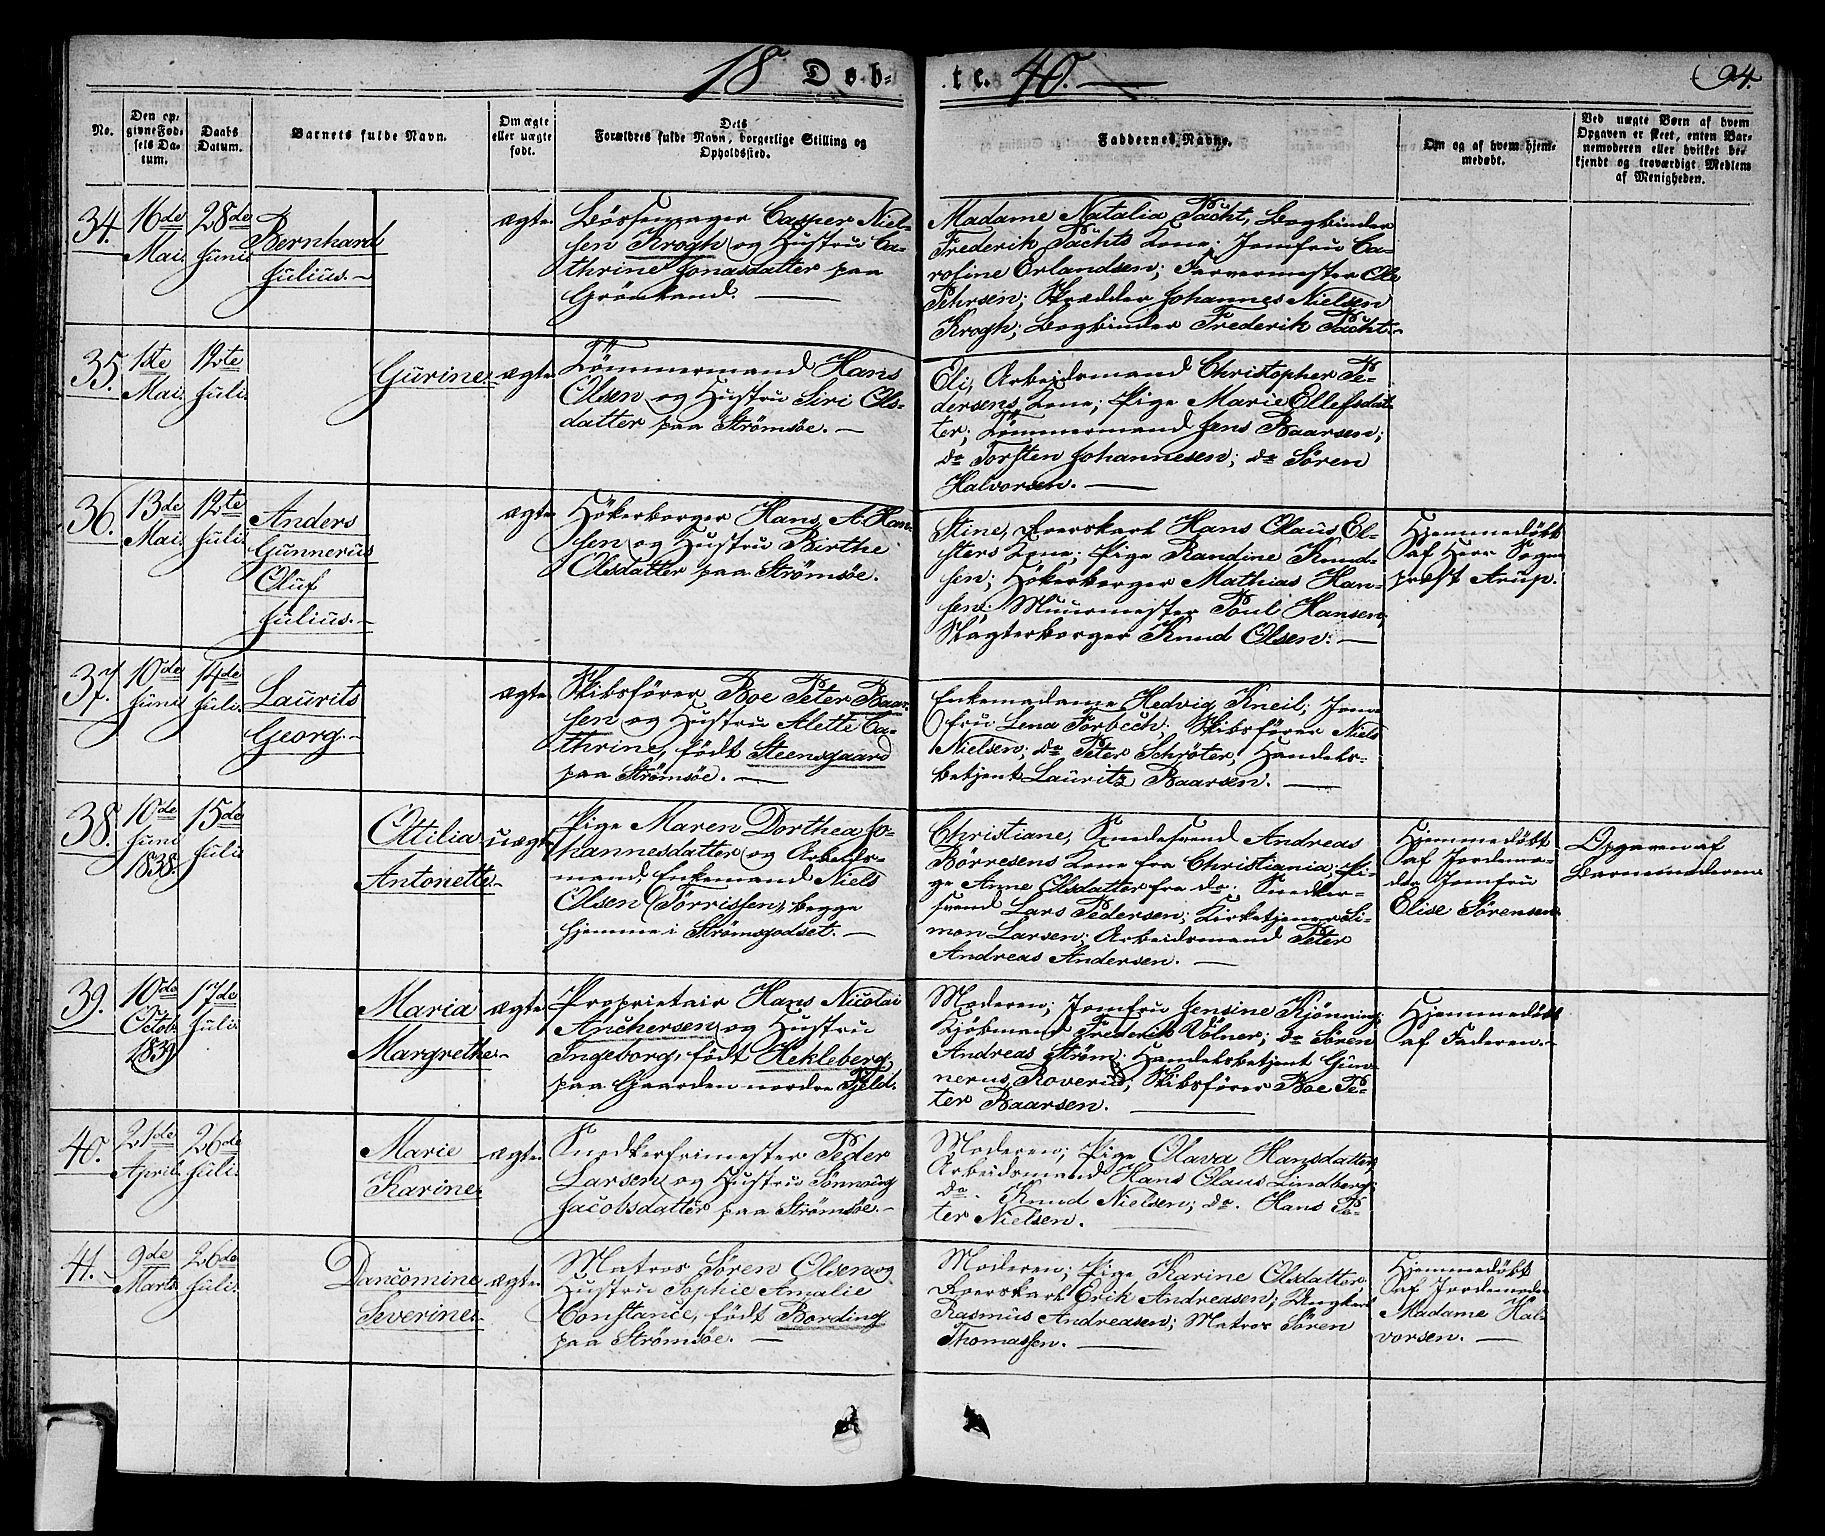 18 Døb-
te. 40.
94.
No.
Den op-
givne Fød-
sels Da-
tum.
Daabs
Datum.
Barnets fulde Navn.
Om ægte
eller uægte
født.
Dets
Forældres fulde Navn, borgerlige Stilling og
Opholdssted.
Faddernes Navne.
Om og af hvem hjem-
medøbt.
Ved uægte Børn af hvem
Opgaven er skeet, enten Bar-
nemoderen eller hvilket be-
kjendt og troværdigt Medlem
af Menigheden.
34.
16de
Mai.
28de
Juni
Bernhard
Julius.
ægte
Bøssemager Casper Niel-
sen Krogh og Hustru Ca-
thrine Jonasdatter paa
Grönland.
Madame Natalia Pacht, Bogbinder
Frederik Pachts Kone; Jomfru Ca-
roline Erlandsen; Farvermester Ole
Pehrsen; Skrædder Johannes Nielsen
Krogh; Bogbinder Frederik Pacht.
35.
1ste
Mai.
12te
Juli.
Gurine.
ægte
Tømmermand Hans
Olsen og Hustru Siri Ols-
datter paa Strømsøe.
Eli, Arbeidsmand Christopher Pe-
dersens Kone; Pige Marie Ellefsdat-
ter; Tømmermand Jens Baarsen;
do Torsten Johannesen; do Søren
Halvorsen.
36.
13de
Mai.
12te
Juli.
Anders
Gunnerus
Oluf
Julius.
ægte
Høkerborger Hans A. Han-
sen og Hustru Birthe
Olsdatter paa Strømsøe.
Stine, Toerskarl Hans Olaus El-
sters Kone; Pige Randine Knud-
sen; Høkerborger Mathias Han-
sen; Muurmester Poul Hansen;
Slagterborger Knud Olsen.
Hjemmedøbt
af Herr Sogne
præst Arup.
37.
10de
Juni
14de
Juli.
Laurits
Georg.
ægte
Skibsfører Boe Peter Baar-
sen og Hustru Alette Ca-
thrine, født Steensgaard
paa Strømsøe.
Enkemadame Hedvig Kneil; Jom-
fru Lena Torbech; Skibsfører Niels
Nielsen; do Peter Schrøter, Handels-
betjent Lauritz Baarsen.
38.
10de
Juni
1838.
15de
Juli
Ottilia
Antonette.
uægte
Pige Maren Dorthea Jo-
hannesdatter og Arbeids-
mand, Enkemand Niels
Olsen (Torrissen), begge
hjemme i Strømsgodset.
Christiane, Smedesvend Andreas
Børresens Kone fra Christiania; Pi-
ge Anne Olsdatter fra do. Snedker-
svend Lars Pedersen; Kirketjener Si-
mon Larsen; Arbeidsmand Peter
Andreas Andersen.
Hjemmedøbt
af Jordemo-
der Jomfru
Elise Sørensen.
Opgaven af
Barnemoderen
39.
10de
Octob.
1839
17de
Juli.
Maria
Margrethe.
ægte
Proprietair Hans Nicolai
Anchersen og Hustru
Ingeborg, født Hekleberg,
paa Gaarden nordre Fjeld.
Moderen; Jomfru Jensine Kjønning;
Kjøbmand Frederik Völner; do Søren
Andreas Strøm; Handelsbetjent Gun-
nerus Roverud; Skibsfører Boe Pe-
ter Baarsen.
Hjemmedøbt
af Faderen.
40.
21de
April.
26de
Juli.
Marie
Karine.
ægte.
Snedkerfrimester Peder
Larsen og Hustru Sønnoug
Jacobsdatter paa Strømsøe.
Moderen; Pige Olava Hansdatter,
Arbeidsmand Hans Olaus Lindberg;
do. Knud Nielsen; do. Hans Pe-
ter Nielsen.
41.
9de
Marts
26de
Juli.
Dancomine
Severine.
ægte.
Matros Søren Olsen og
Hustru Sophie Amalie
Constance, født Bording
paa Strømsøe.
Moderen; Pige Karine Olsdatter;
Toerskarl Erik Andreasen; Ungkarl
Rasmus Andreasen; Matros Søren
Thomassen.
Hjemmedøbt
af Jordemoder
Madame Hal-
vorsen.